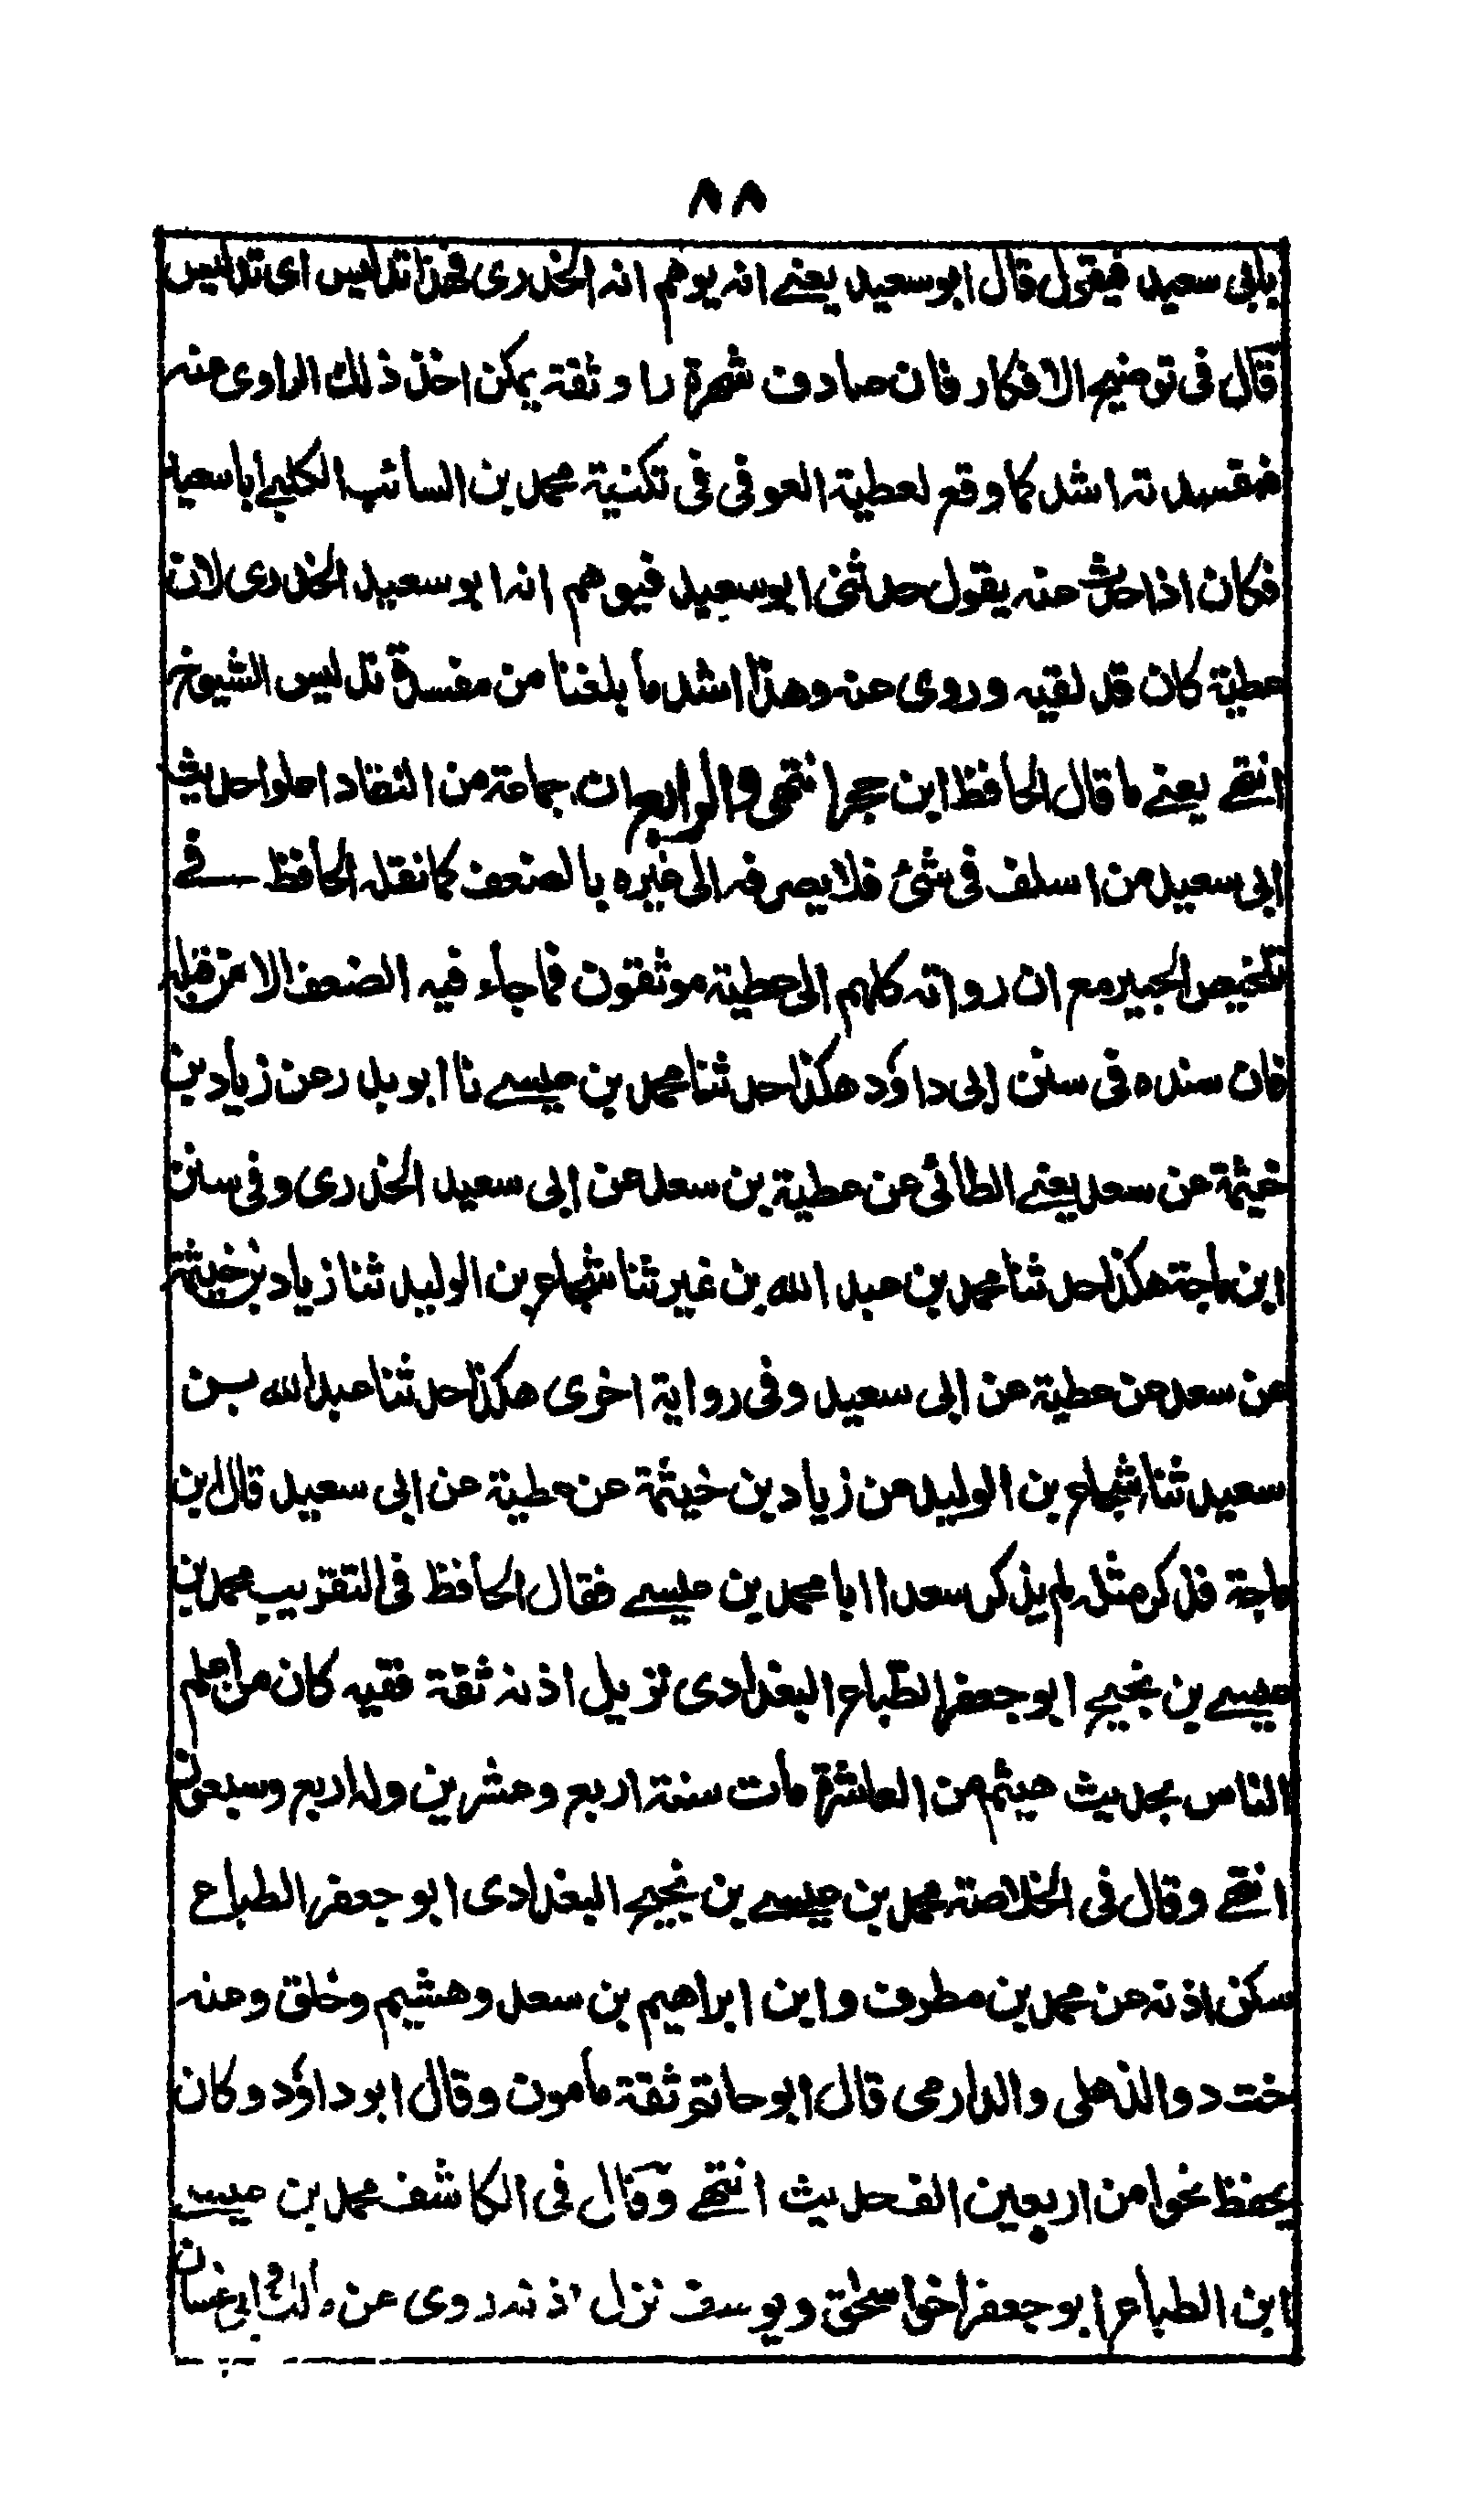 ٨٨
بابى سعيد فيقول قال ابو سعيد يعنے انه يوهم انه الخدرى فهذا تدليس اى تدليس
قال فى توضيح الافكار فان صادف شهرة راو ثقة يمكن اخذ ذلك الراوى عنه
فمفسدته اشد كما وقع لعطية العوفى فى تكنية محمد بن السائب الكلبے ابا سعيد
فكان اذا حدث عنه يقول حدثنى ابو سعيد فيوهم انه ابو سعيد الخدرى لان
عطية كان قد لقيه وروى عنه وهذا اشد ما بلغنا من مفسدة تدليس الشيوخ
انتهے يعنے ما قال الحافظ ابن حجر انتهى والرابع ان جماعة من النقاد اعلوا حديث
ابى سعيد من اسلف فى شئ فلا يصرفه الى غيره بالضعف كما نقله الحافظ فے
تلخيص الحبير مع ان رواته كلهم الى عطية موثقون فما جاء فيه الضعف الا من قبله
فان سنده فى سنن ابى داؤد هكذا حدثنا محمد بن عيسے نا ابو بدر عن زياد بن
خيثمة عن سعد يعنے الطائى عن عطية بن سعد عن ابى سعيد الخدرى وفى سنن
ابن ماجة هكذا حدثنا محمد بن عبد الله بن نمير ثنا شجاع بن الوليد ثنا زياد بن خيثمة
عن سعد عن عطية عن ابى سعيد وفى رواية اخرى هكذا حدثنا عبد الله بن
سعيد ثنا شجاع بن الوليد عن زياد بن خيثمة عن عطية عن ابى سعيد قال ابن
ماجة فذكر مثله لم يذكر سعدا اما محمد بن عيسے فقال الحافظ فى التقريب محمد بن
عيسے بن نجيح ابو جعفر الطباع البغدادى نزيل اذنة ثقة فقيه كان من اعلم
الناس بحديث هيثم من العاشرة مات سنة اربع وعشرين وله اربع وسبعون
انتهے وقال فى الخلاصة محمد بن عيسے بن نجيح البغدادى ابو جعفر الطباع
سكن اذنة عن محمد بن مطرف وابن ابراهيم بن سعد وهشيم وخلق وعنه
خت د والذهلى والدارمى قال ابو حاتم ثقة مامون وقال ابو داؤد وكان
يحفظ نحوا من اربعين الف حديث انتهے وقال فى الكاشف محمد بن عيسے
ابن الطباع ابو جعفر اخو اسحق ويوسف نزل اذنة روى عن مالك وابى غسان